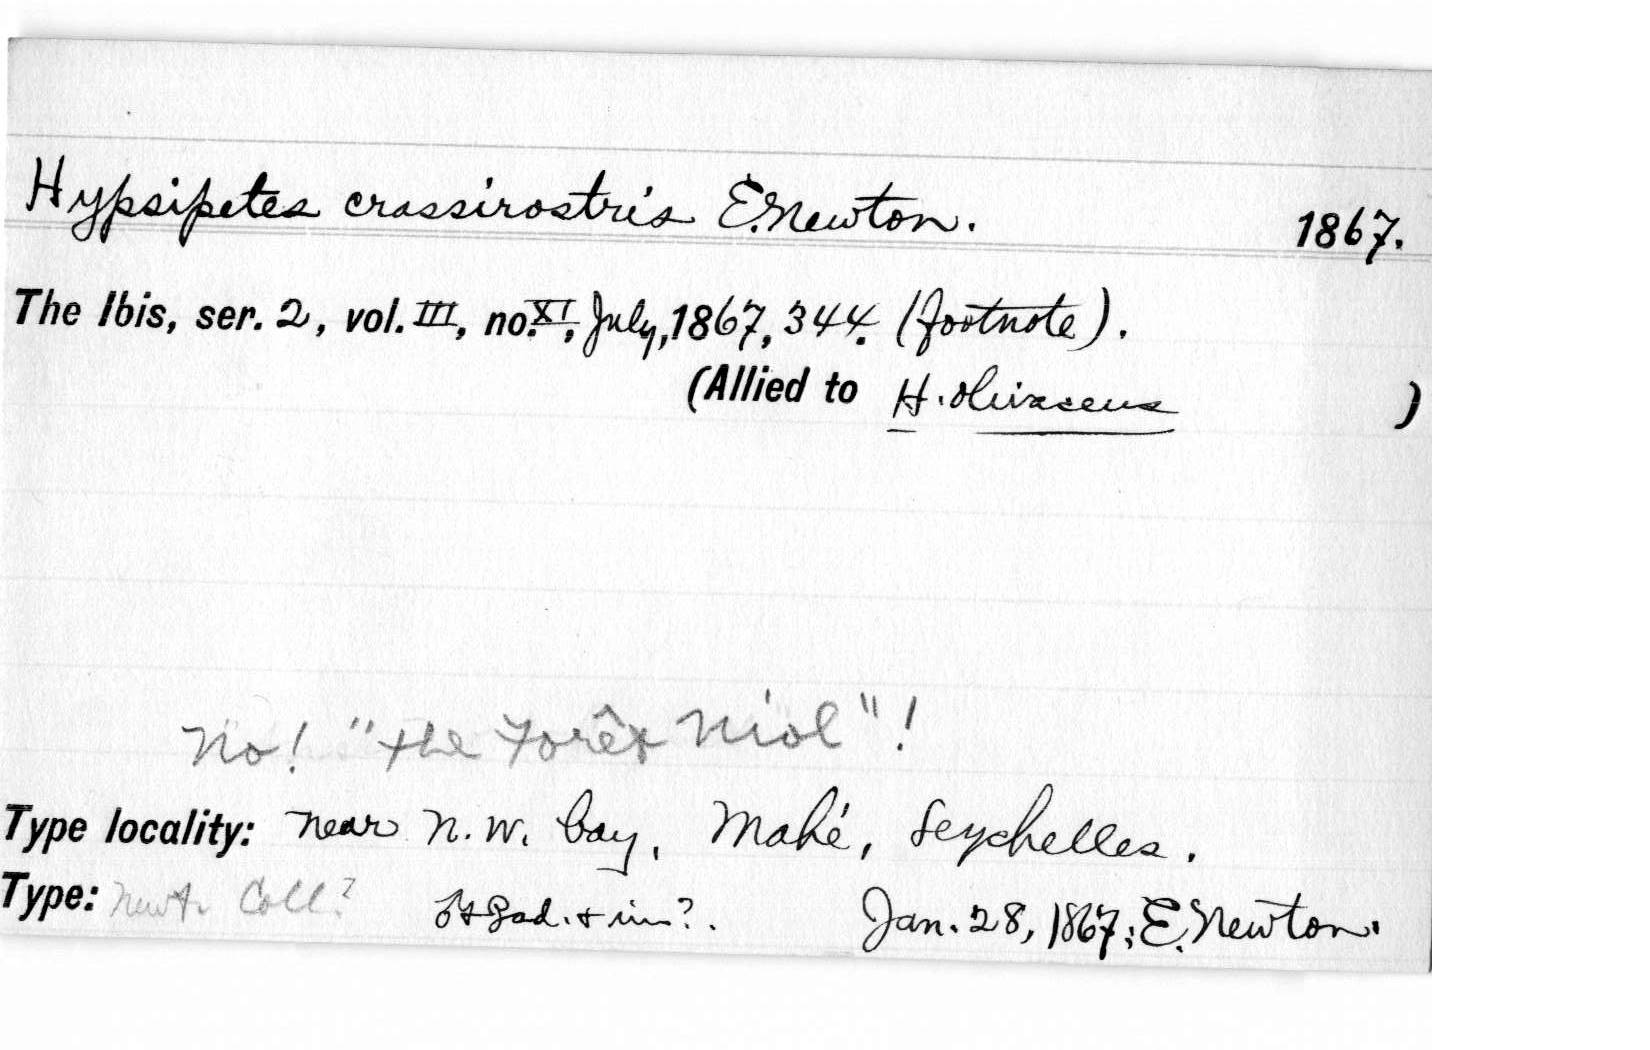 Hypsipetes crassirostris E. Newton. 1867.
The Ibis, ser. 2, vol. III, no. XI, July, 1867, 344. (footnote).
(Allied to H. olivaceus )
No! "the Forêt Niol"!
Type locality: near N.W. bay, Mahé, Seychelles.
Type: Newt. Coll? ♂+♀ ad. + im?. Jan. 28, 1867; E. Newton.